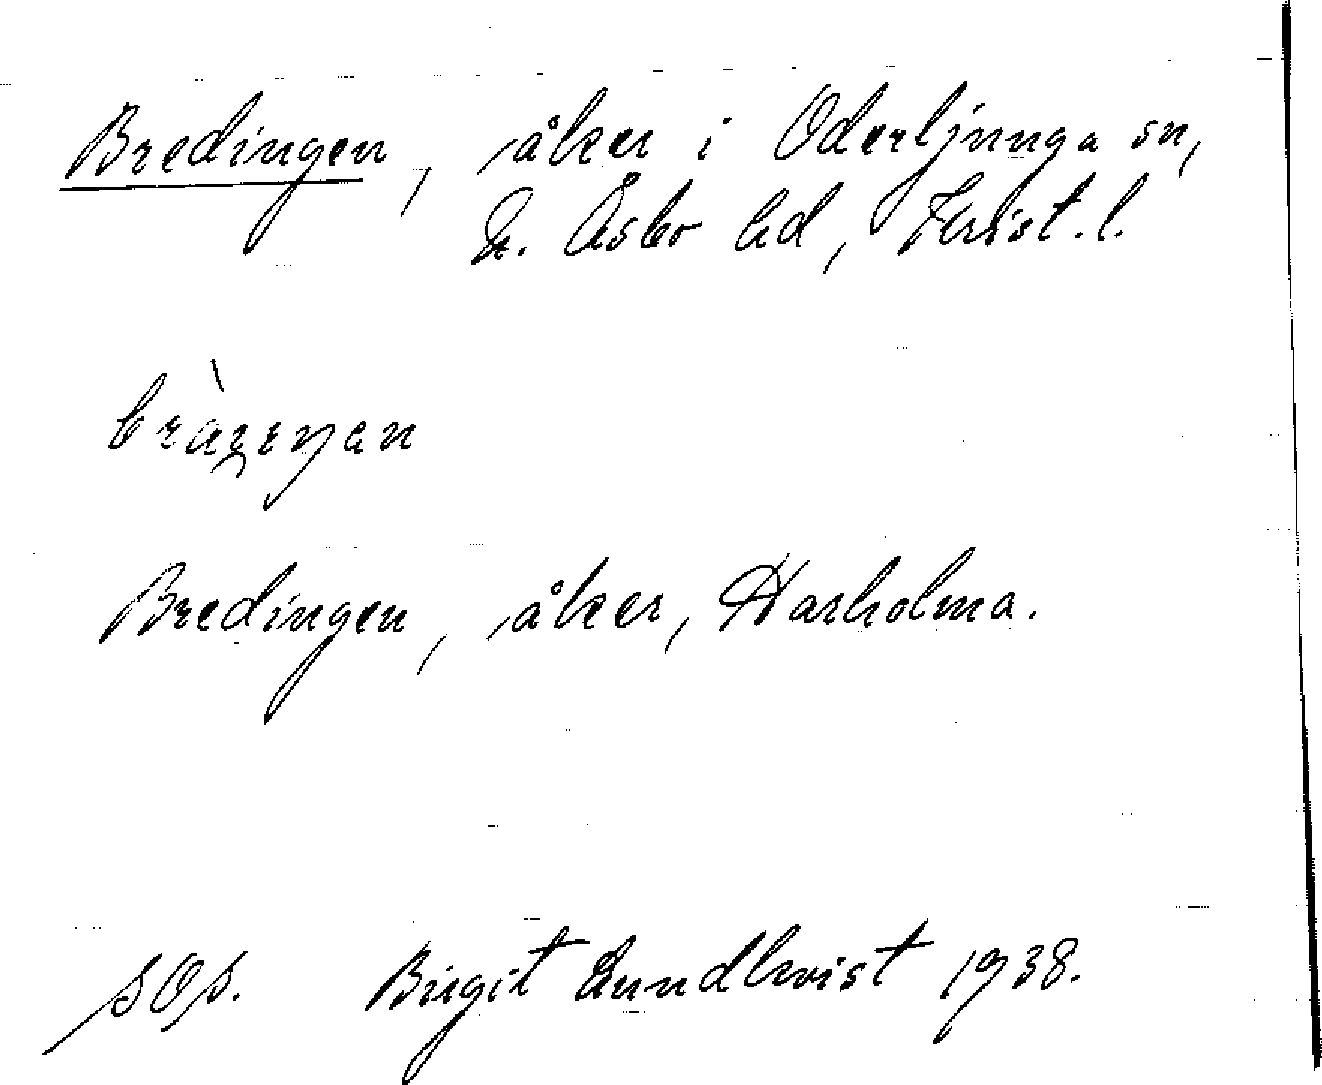 Bredingen, åker i Oderljunga sn,
N. Åsbo hd, Krist. l.
Bredingen, åker, Harholma.
SOS. Birgit Lundkvist 1938.